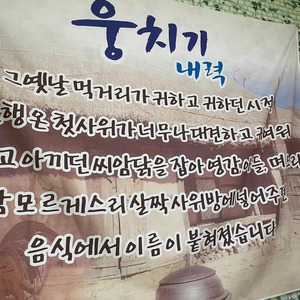 웅치기
내력
그옛날 먹거리가 귀하고 귀하던 시절
행온 첫사위가 너무나 대견하고 귀여워
고 아끼던 씨암닭을 잡아 영감 아들, 며
모르게 스리살짝 사위방에 넣어주
음식에서 이름이 붙혀졌습니다